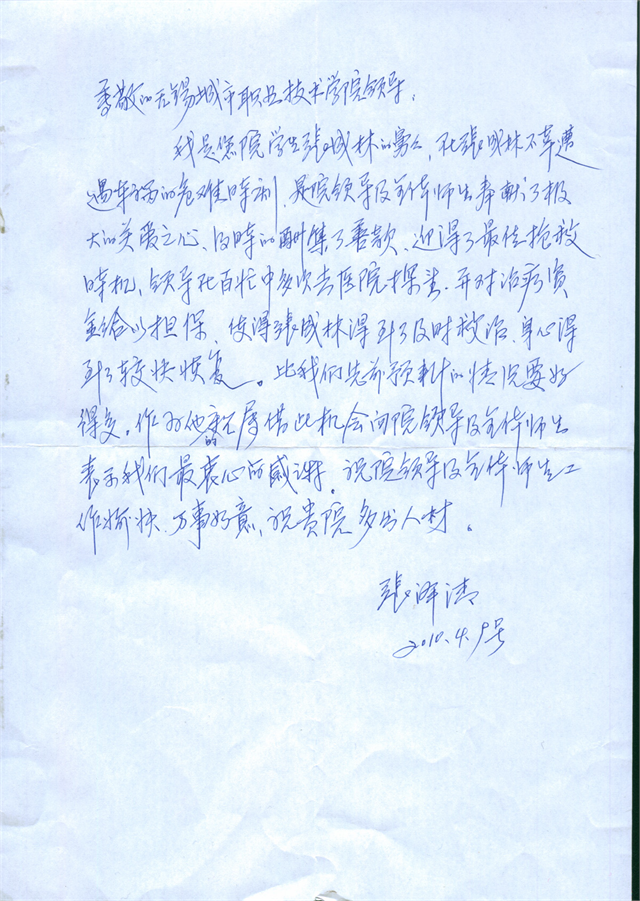 尊敬的无锡城市职业技术学院领导:
我是您院学生張成林的舅公,在張成林不幸遭
遇车祸的危难時刻,是院领导及全体师生奉献了极
大的关爱之心、及時的酬集了善款、迎得了最佳抢救
時机,领导在百忙中多次去医院探望.并对治疗資
金给以担保,使得張成林得到了及时救治.身心得
到了较快恢复。比我们先前预料的情况要好
得多.作为他的親属借此机会向院领导及全体师生
表示我们最衷心的感谢.祝院领导及全体师生工
作愉快.万事如意,祝贵院多出人材。
張泽清
2010.4.9号